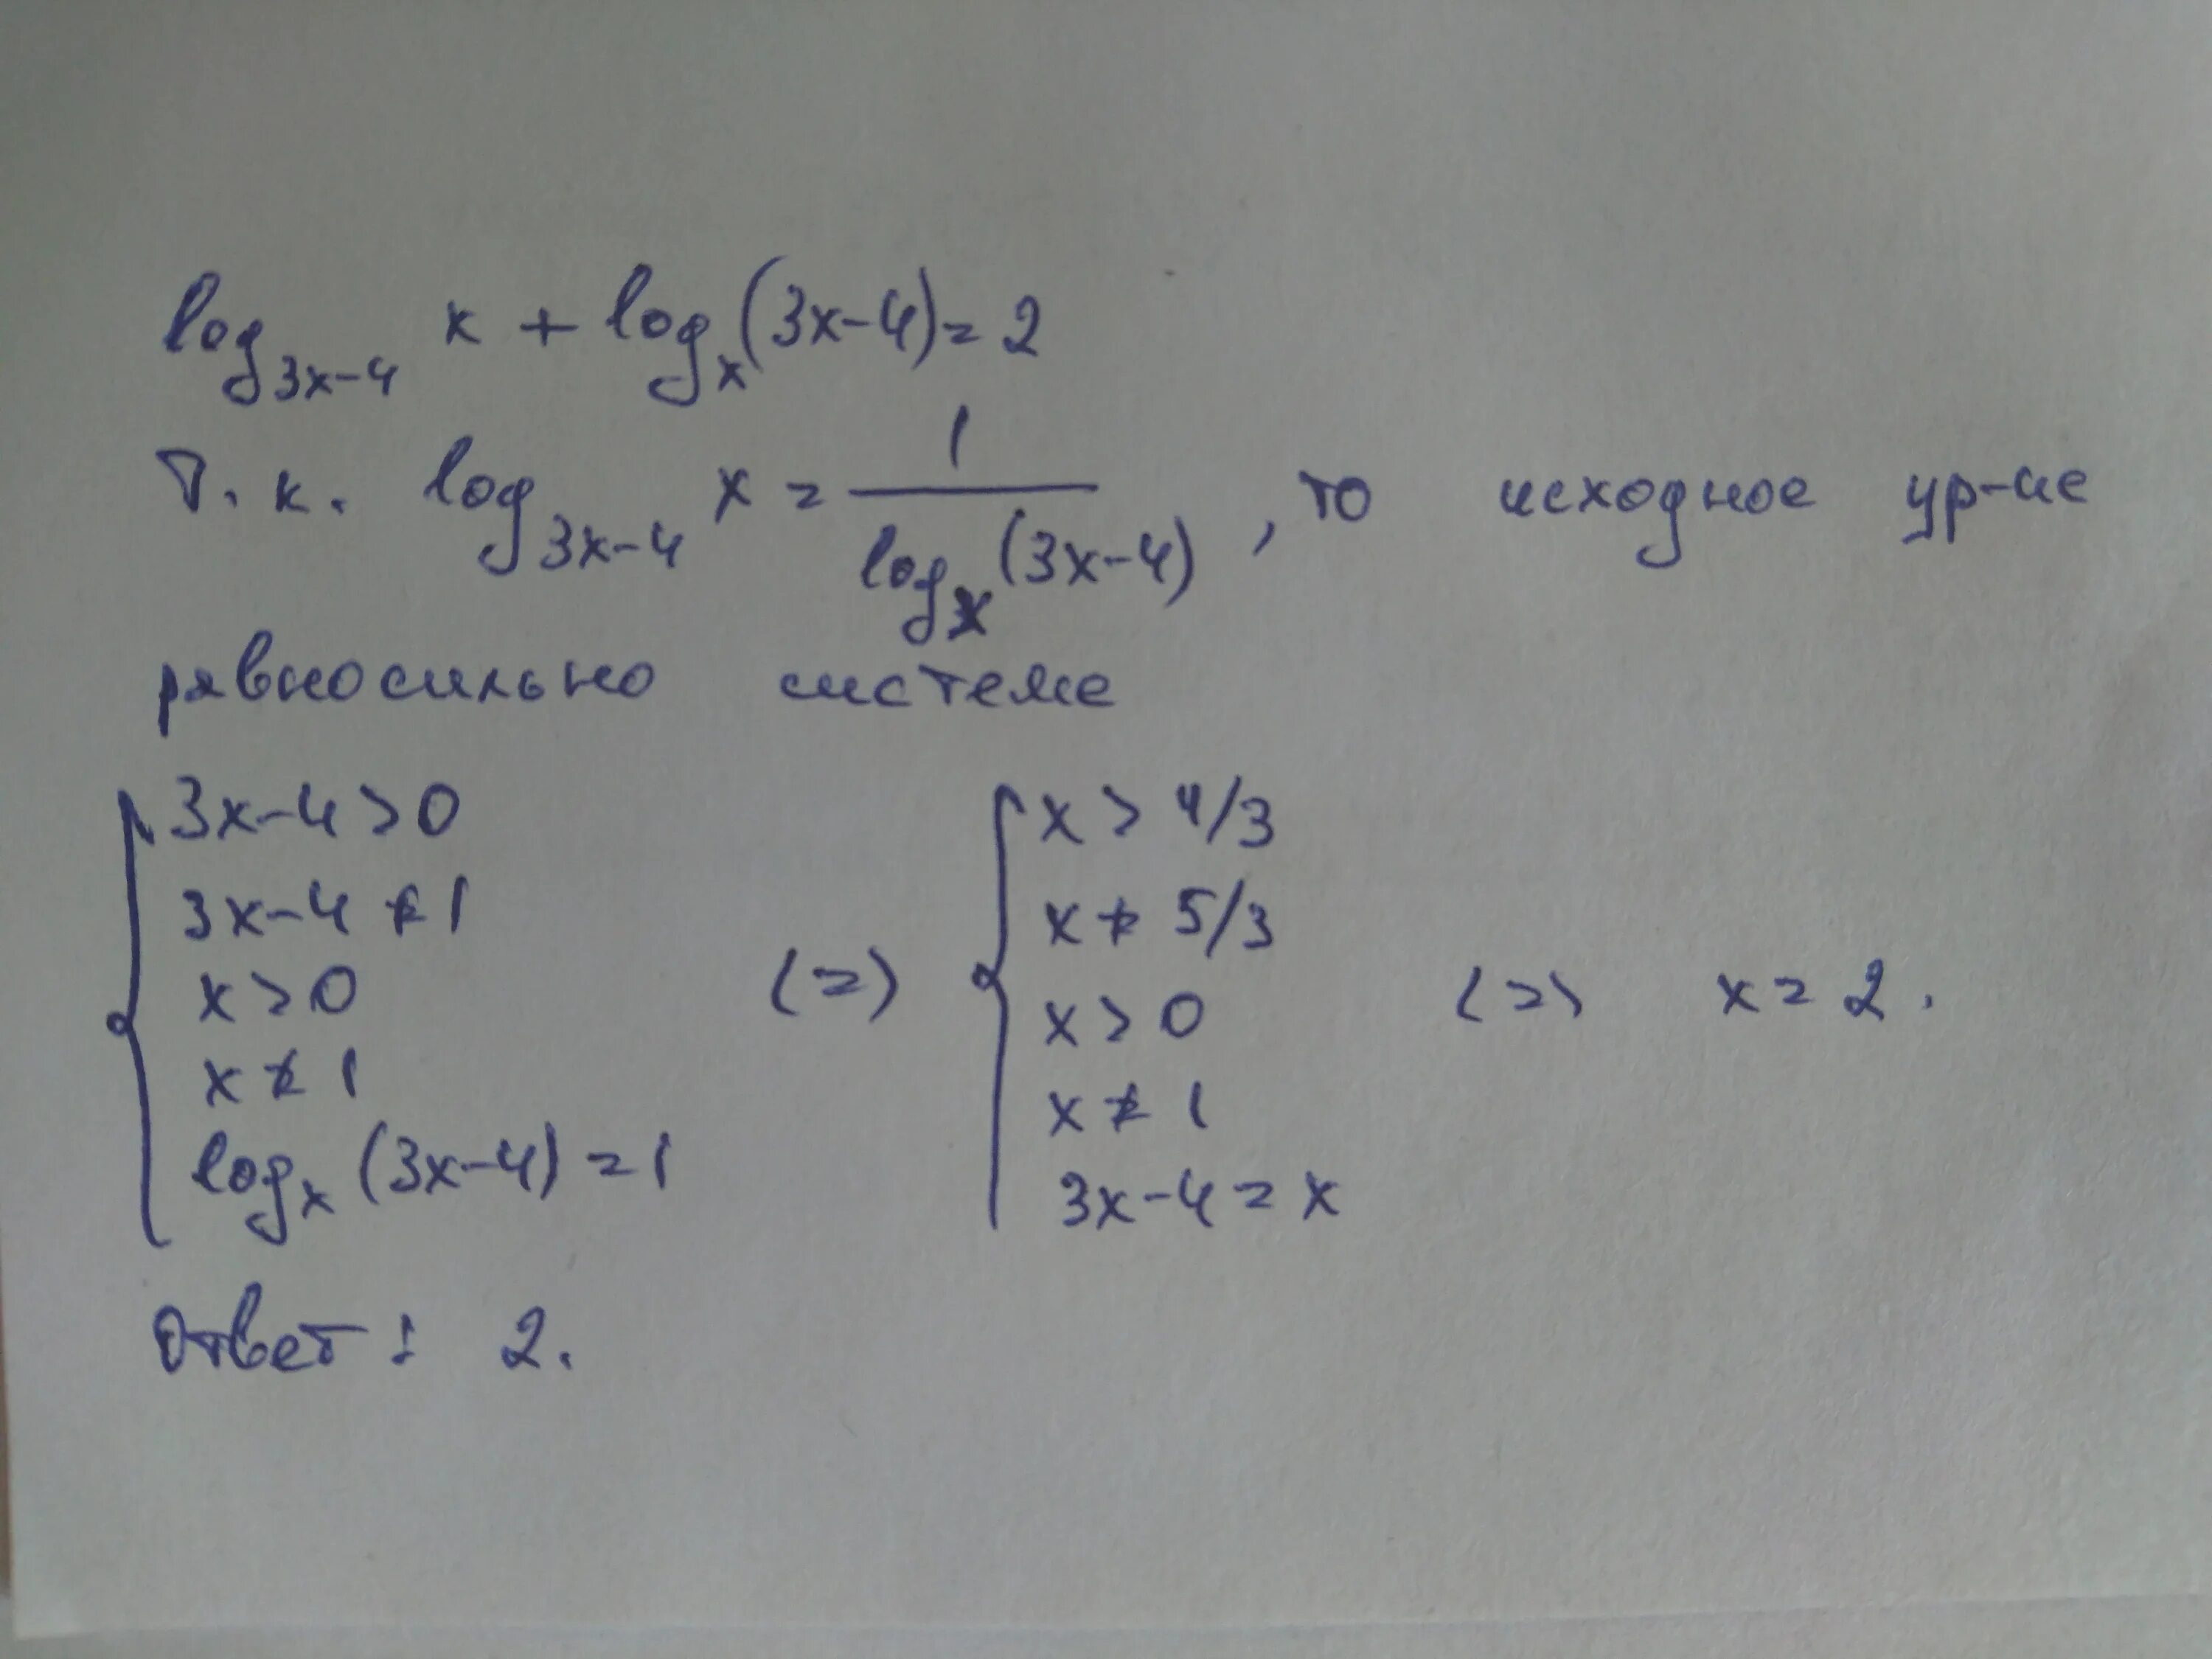 log₃ₓ₋₄ x + logₓ(3x-4) = 2
Т. к. log₃ₓ₋₄ x = 1 / logₓ(3x-4), то исходное ур-ие
равносильно системе
{ 3x-4 > 0 (=) { x > 4/3 (=) x = 2.
3x-4 ≠ 1 x ≠ 5/3
x > 0 x > 0
x ≠ 1 x ≠ 1
logₓ (3x-4) = 1 3x-4 = x
Ответ: 2.